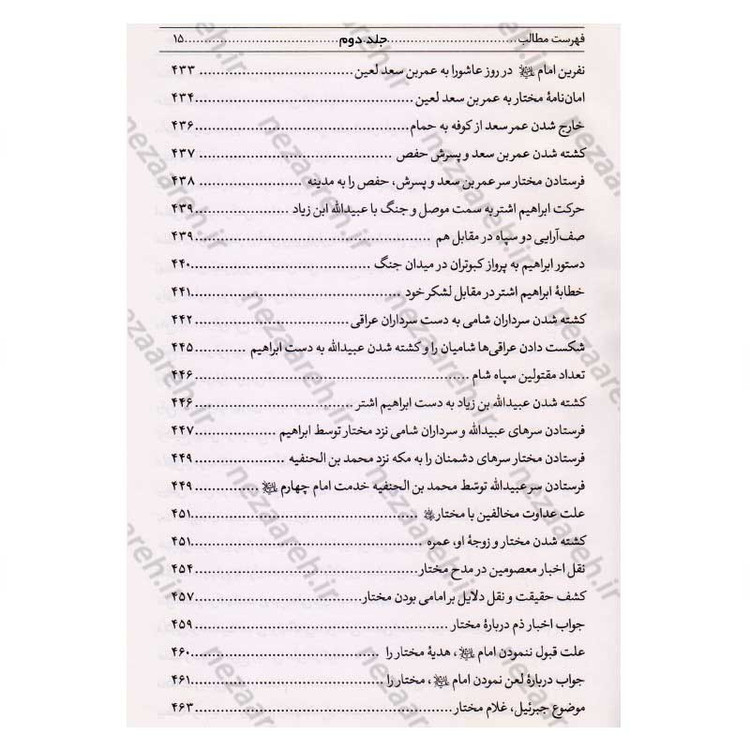 فهرست مطالب.....جلد دوم.....۱۵
نفرین امام ﷷ در روز عاشورا به عمربن سعد لعین.....۴۳۳
امان‌نامهٔ مختار به عمربن سعد لعین.....۴۳۴
خارج شدن عمر سعد از کوفه به حمام.....۴۳۶
کشته شدن عمر بن سعد و پسرش حفص.....۴۳۷
فرستادن مختار سر عمربن سعد و پسرش، حفص را به مدینه.....۴۳۸
حرکت ابراهیم اشتر به سمت موصل و جنگ با عبیدالله ابن زیاد.....۴۳۹
صف‌آرایی دو سپاه در مقابل هم.....۴۳۹
دستور ابراهیم به پرواز کبوتران در میدان جنگ.....۴۴۰
خطابهٔ ابراهیم اشتر در مقابل لشکر خود.....۴۴۱
کشته شدن سرداران شامی به دست سرداران عراقی.....۴۴۲
شکست دادن عراقی‌ها شامیان را و کشته شدن عبیدالله به دست ابراهیم.....۴۴۵
تعداد مقتولین سپاه شام.....۴۴۶
کشته شدن عبیدالله بن زیاد به دست ابراهیم اشتر.....۴۴۶
فرستادن سرهای عبیدالله و سرداران شامی نزد مختار توسط ابراهیم.....۴۴۷
فرستادن مختار سرهای دشمنان را به مکه نزد محمد بن الحنفیه.....۴۴۹
فرستادن سر عبیدالله توسّط محمد بن الحنفیه خدمت امام چهارم.....۴۴۹
علت عداوت مخالفین با مختار.....۴۵۱
کشته شدن مختار و زوجهٔ او، عمره.....۴۵۱
نقل اخبار معصومین در مدح مختار.....۴۵۴
کشف حقیقت و نقل دلایل بر امامی بودن مختار.....۴۵۷
جواب اخبار ذم دربارهٔ مختار.....۴۵۹
علت قبول ننمودن امام، هدیهٔ مختار را.....۴۶۰
جواب دربارهٔ لعن نمودن امام، مختار را.....۴۶۱
موضوع جبرئیل، غلام مختار.....۴۶۳
nezaareh.ir